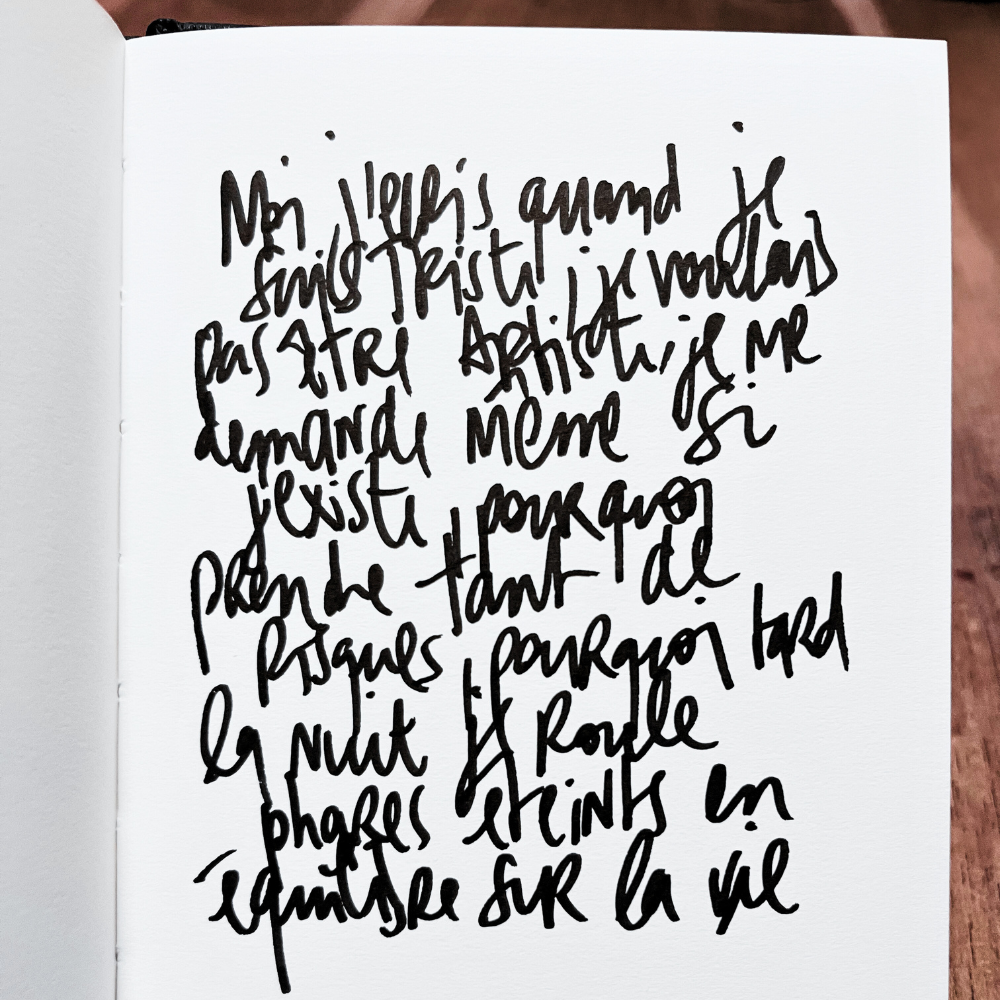 Moi j'écris quand je
suis triste, je voulais
pas être Artiste, je me
demande même si
j'existe, pourquoi
prendre tant de
risques, pourquoi tard
la nuit je Roule
phares éteints en
équilibre sur la vie